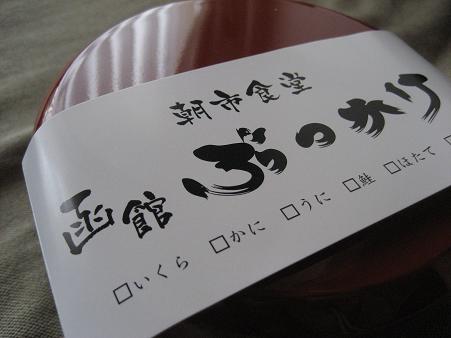 朝市食堂
函館 ぶっかけ
□いくら □かに □うに □鮭 □ほたて □